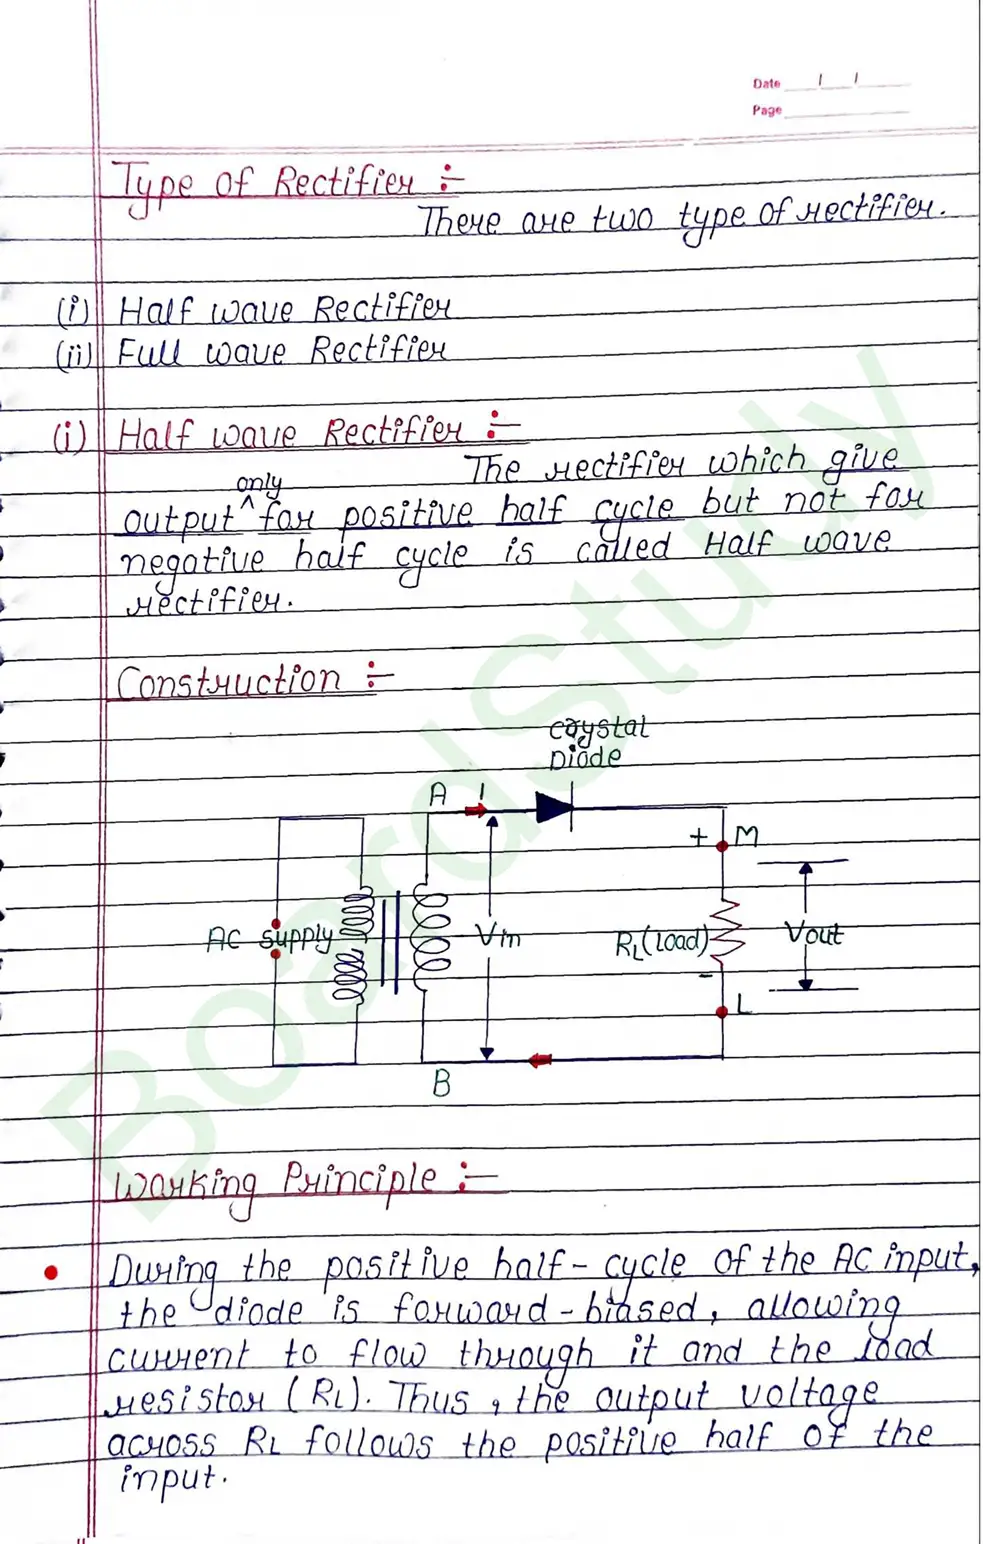 Date
Page
Type of Rectifier :-
There are two type of rectifier.
(i) Half wave Rectifier
(ii) Full wave Rectifier
(i) Half wave Rectifier :-
The rectifier which give
only
output ^ for positive half cycle but not for
negative half cycle is called Half wave
rectifier.
Construction :-
Crystal
Diode
A I
+ M
AC supply Vin RL(load) Vout
-
L
B
Working Principle :-
• During the positive half-cycle of the AC input,
the diode is forward-biased, allowing
current to flow through it and the load
resistor (RL). Thus, the output voltage
across RL follows the positive half of the
input.
BoardStudy